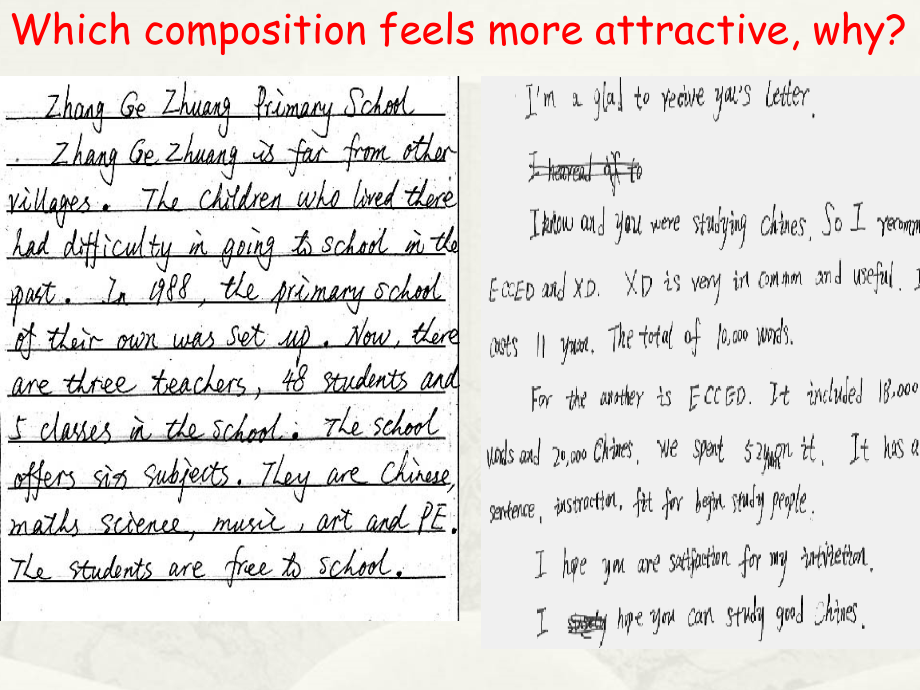 Which composition feels more attractive, why?
Zhang Ge Zhuang Primary School
Zhang Ge Zhuang is far from other
villages. The children who lived there
had difficulty in going to school in the
past. In 1988, the primary school
of their own was set up. Now, there
are three teachers, 48 students and
5 classes in the school. The school
offers six subjects. They are Chinese,
maths science, music, art and PE.
The students are free to school.
I'm a glad to recive you's letter.
I heared of to
I know and you were studying chines. So I recomm
ECCED and XD. XD is very in comm and useful. I
costs 11 yuan. The total of 10,000 words.
For the another is ECCED. It included 18,000
words and 20,000 Chines. We spent 52 yuan on it. It has a
sentence, instraction, fit for begin study people.
I hope you are satifaction for my
I hope you can study good Chines.